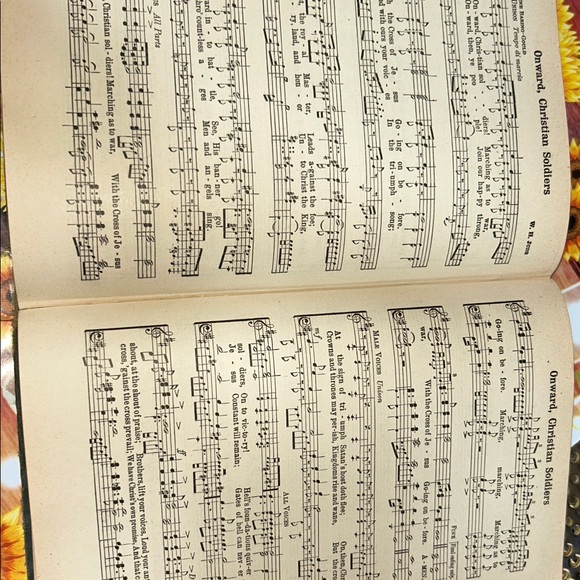 Onward, Christian Soldiers
W. H. JUDE
UNISON Tempo di marcia
On - ward, Christ-ian sol - diers! Marching as to war,
On - ward, then, ye peo - ple! Join our hap-py throng,
the Cross of Je - sus Go - ing on be - fore.
with ours your voic - es In the tri-umph - song:
the roy - al Mas - ter, Leads a-gainst the foe;
land, and hon - or Un - to Christ the King,
in to bat - tle, See, His ban-ner go!
count-less a - ges Men and an-gels sing,
All Parts
Christian sol - diers! Marching as to war, With the Cross of Je - sus
Onward, Christian Soldiers
Go-ing on be - fore. Marching, marching, Marching as to
FINE
war, With the Cross of Je - sus Go-ing on be - fore. A - MEN
MALE VOICES Unison
mf
At the sign of tri - umph Satan's host doth flee; On, then, Chris
Crowns and thrones may per-ish, Kingdoms rise and wane, But the
ALL VOICES
sol - diers, On to vic-to-ry! Hell's foun-da-tions quiv-er
Je - sus Constant will remain; Gates of hell can nev-er
ff
shout, at the shout of praise; Brothers, lift your voices, Loud your
cross, 'gainst the cross prevail; We have Christ's own promise, And that